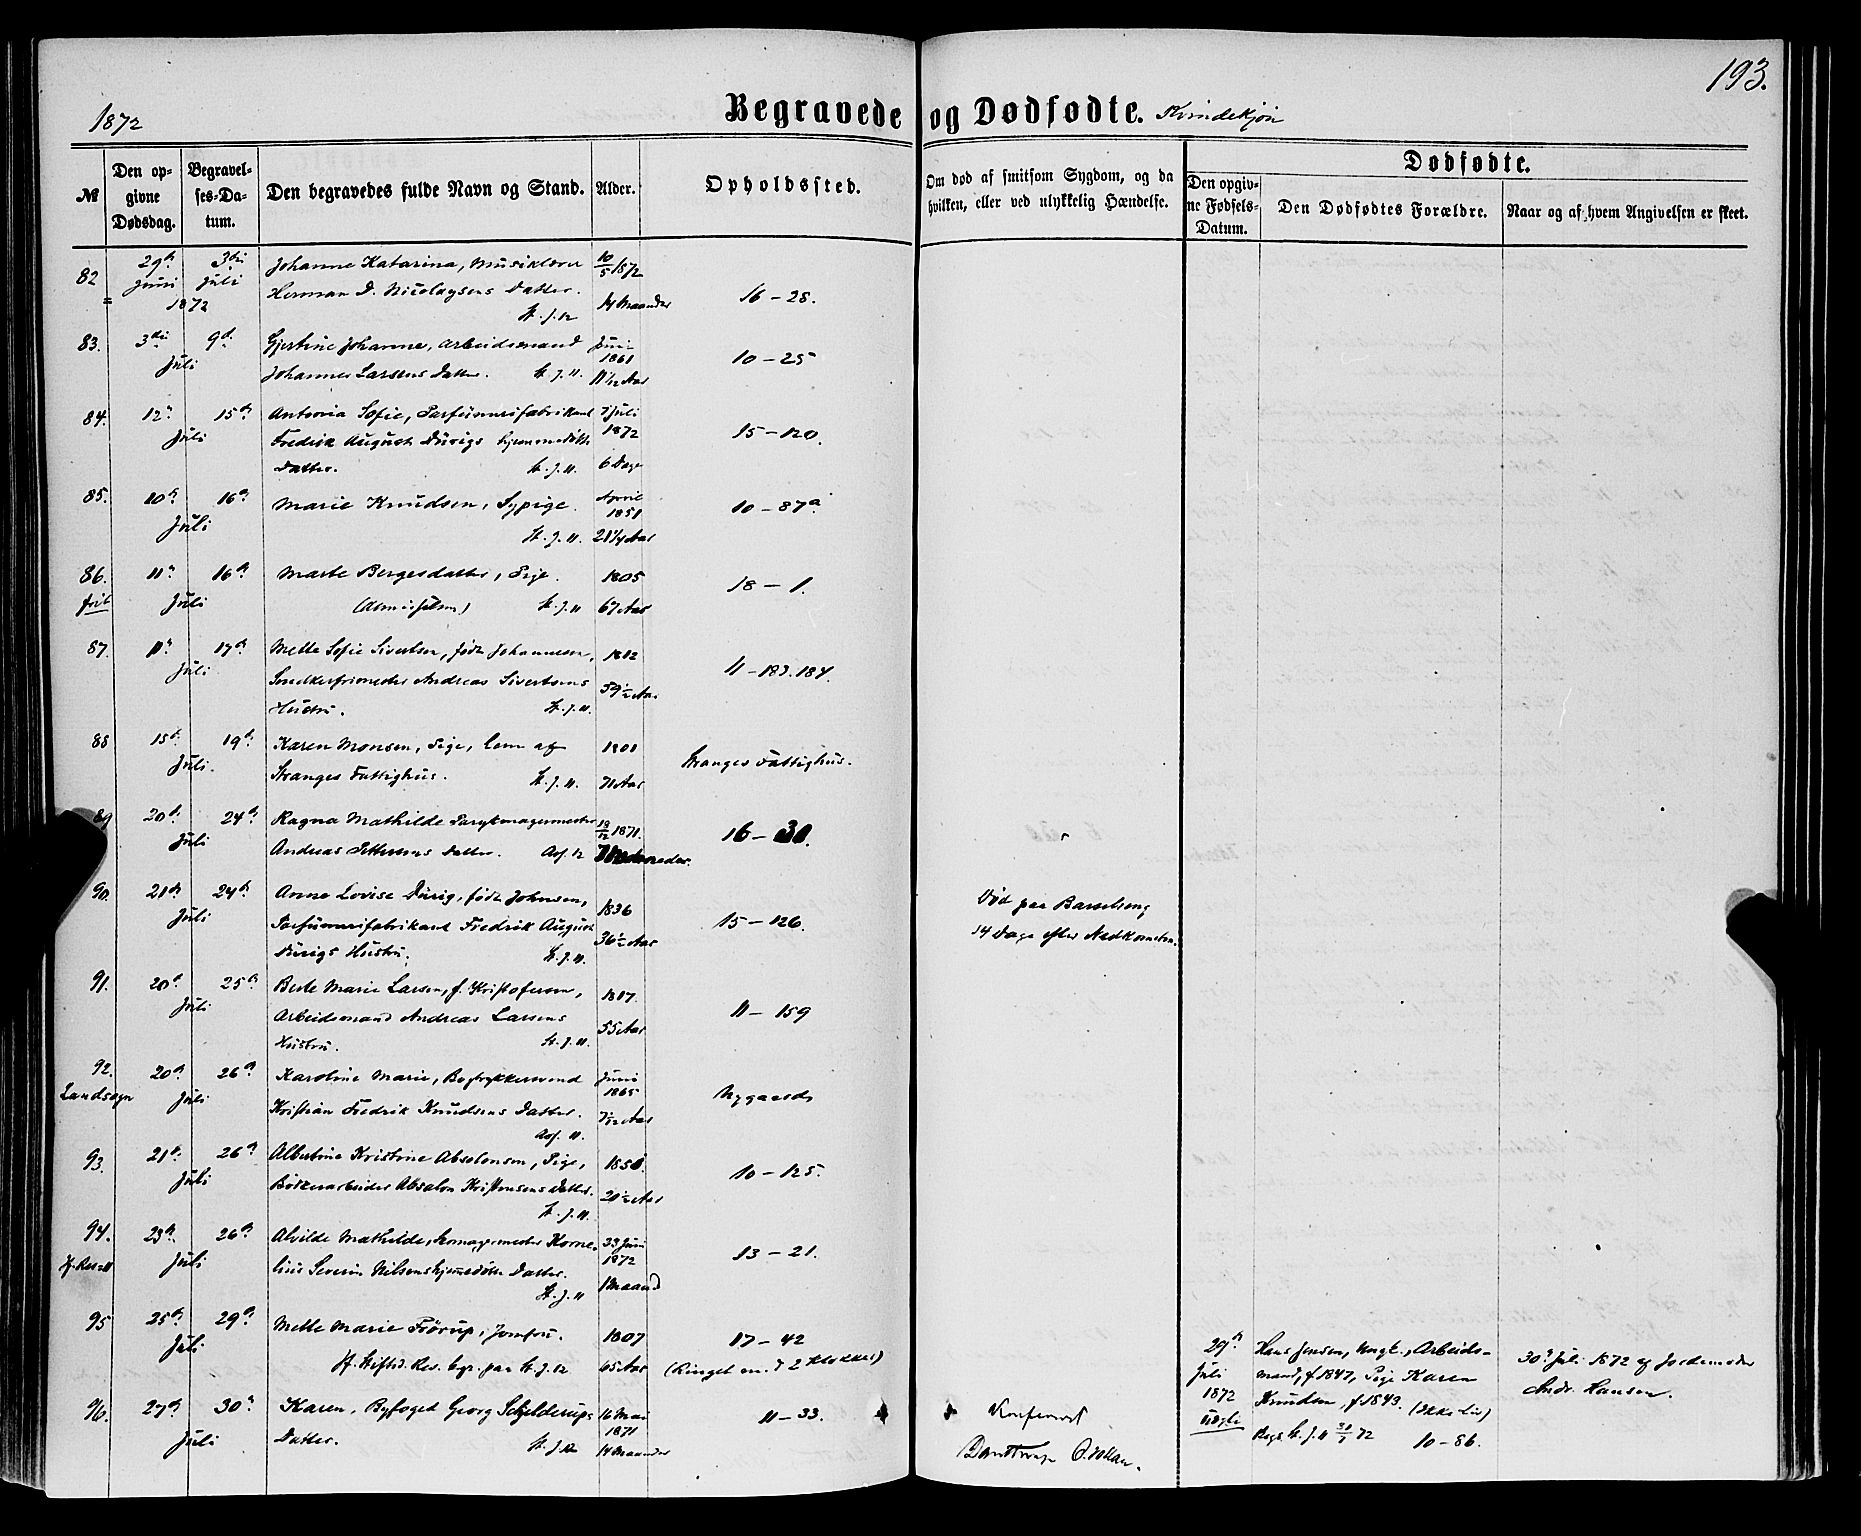 193.
1872
Begravede og Dødfødte. Kvindekjøn
№
Den opgivne Dødsdag.
Begravelses-Datum.
Den begravedes fulde Navn og Stand.
Alder.
Opholdssted.
Om død af smitsom Sygdom, og da hvilken, eller ved ulykkelig Hændelse.
Dødfødte.
Den opgivne Fødsels-Datum.
Den Dødfødtes Forældre.
Naar og af hvem Angivelsen er skeet.
82 29de Juni 3die Juli 1872
Johanne Katarina, Musiklærer
Herman D. Nicolaysens Datter.
10/5 1872
16 – 28.
83. 3die 9de Juli
Gjertine Johanne, Arbeidsmand
Johannes Larsens Datter. St. J. u.
Juni 1861
11 1/12 Aar
10 – 25
84. 12te 15de Juli
Antonia Sofie, Parfumerifabrikant
Fredrik August Dürigs hjemmedøbte
Datter. St. J. u.
7 Juli 1872
6 Dage
15 – 120.
85. 10de 16de Juli
Marie Knudsen, Sypige.
St. J. u.
April 1851
21 1/4 Aar
10 – 87a
86. 11te 16de Juli
frit
Marte Bergesdatter, Pige.
St. J. u
1805
67 Aar
18 – 1.
87. 11te 17de Juli
Mette Sofie Sivertsen, født Johannesen,
Snedkerfrimester Andreas Sivertsens
Hustru. St. J. u.
1812
59 1/2 Aar
11 – 183. 184.
88 15de 19de Juli.
Karen Monsen, Pige, Lem af
Stranges Fattighus. St. J. u.
1801
71 Aar
Stranges Fattighus.
89 20de 24de Juli
Ragna Mathilde Parykmagermester
Andreas Pettersens Datter.
1871.
16 – 30.
90. 21de 24de Juli
Anne Lovise Dürig, født Johnsen,
Parfumerifabrikant Fredrik August
Dürigs Hustru. St. J. u.
1836
36 1/2 Aar
15 – 126.
Død paa Barselseng
14 Dage efter Nedkomsten.
91. 20de 25de Juli
Berte Marie Larsen, f. Kristofersen,
Arbeidsmand Andreas Larsens
Hustru. St. J. u.
1817.
55 Aar
11 – 159
92. 20de 26de Juli
Landsogn
Karoline Marie, Bogtrykkersvend
Kristian Fredrik Knudsens Datter.
Juni 1865
7 1/12 Aar
Nygaards
93. 21de 26de Juli
Albertine Kristine Absalonsen, Pige,
Bødkerarbeider Absalon Kristensens Datter.
St. J. u.
20 1/2 Aar
10 – 125.
94. 23de 26de Juli
Alvilde Mathilde, Skomagermester Korne-
lius Severin Nilsens hjemmedøbte Datter.
St. J. u
23 Juni 1872
1 Maaned
13 – 21.
95 25de 29de Juli
Mette Marie Frörup, Jomfru.
1807
65 Aar
17 – 42
(Ringet m. d 2 Klokker)
96. 27de 30te Juli
Karen, Byfoged Georg Schjelderups
Datter.
16 Mai 1871
14 Maaneder
11 – 33.
Konfereret
29de Juli 1872 uægte
Hans Jensen, Ungk., Arbeids-
mand, f 1847, Pige Karen
Knudsen, f 1843. (Ikke Liv)
10 – 86.
30te Juli 1872 af Jordemoder
Andr. Hansen.